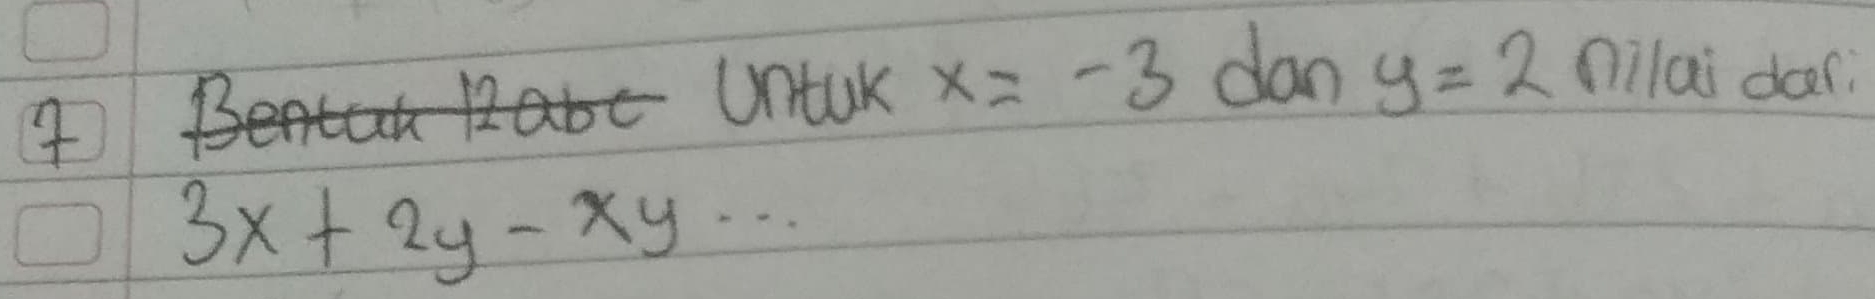 7 Bentuk 12abc Untuk x = -3 dan y = 2 nilai dari
3x + 2y - xy ...